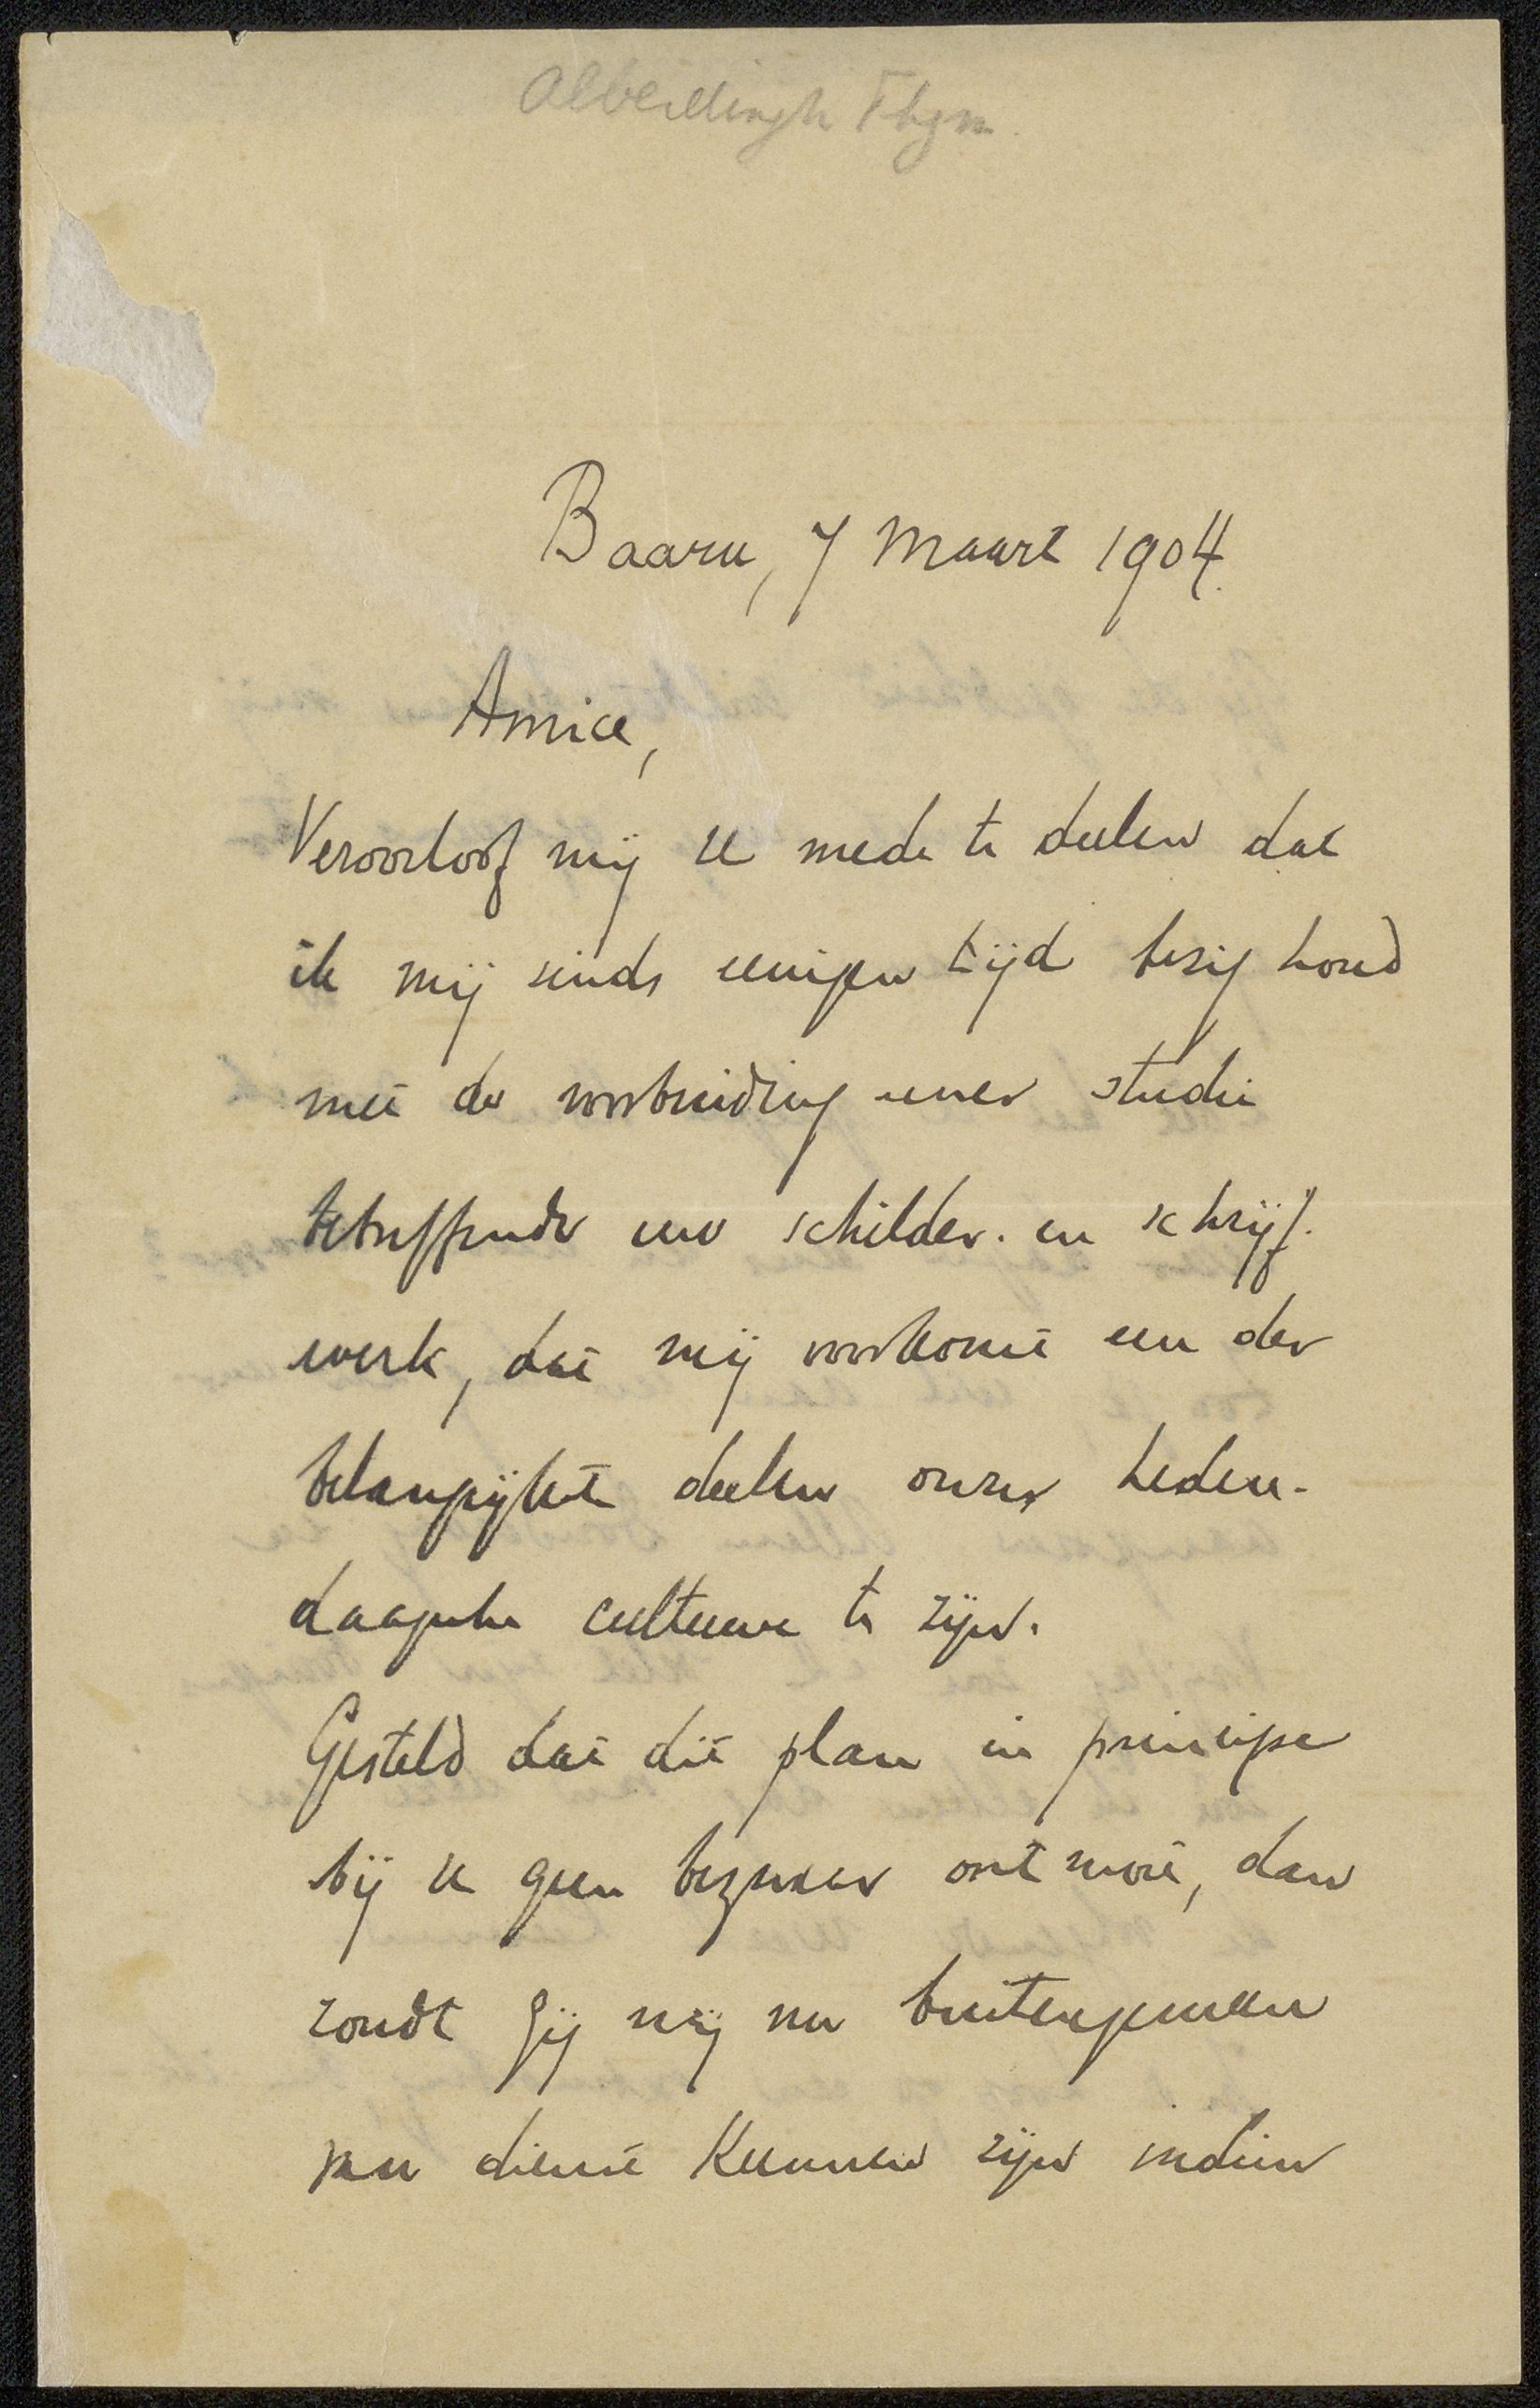 Alberdingk Thym.
Baarn, 7 Maart 1904.
Amice,
Veroorloof mij U mede te deelen dat
ik mij sinds eenigen tijd bezig houd
met de voorbereiding eener studie
betreffende uw schilder- en schrijf-
werk, dat mij voorkomt een der
belangrijkste deelen onzer heden-
daagsche cultuur te zijn.
Gesteld dat dit plan in principe
bij U geen bezwaar ontmoet, dan
zoudt Gij mij nu buitengemeen
van dienst kunnen zijn indien